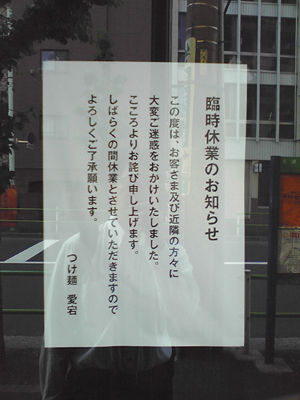 臨時休業のお知らせ
この度は、お客さま及び近隣の方々に
大変ご迷惑をおかけいたしました。
こころよりお詫び申し上げます。
しばらくの間休業とさせていただきますので
よろしくご了承願います。
つけ麺　愛宕